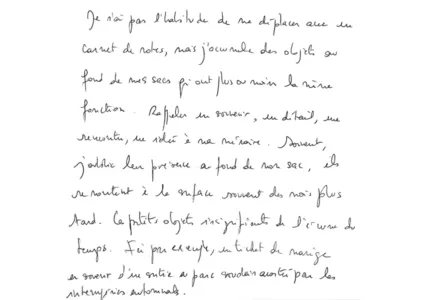 Je n'ai pas l'habitude de me déplacer avec un
carnet de notes, mais j'accumule des objets au
fond de mes sacs qui ont plus ou moins la même
fonction. Rappeler un souvenir, un détail, une
rencontre, une idée à ma mémoire. Souvent,
j'oublie leur présence au fond de mon sac, ils
remontent à la surface souvent des mois plus
tard. Ces petits objets insignifiants de l'écume du
temps. J'ai par exemple, un ticket de manège
en souvenir d'une sortie au parc soudain par les
intempéries automnales.